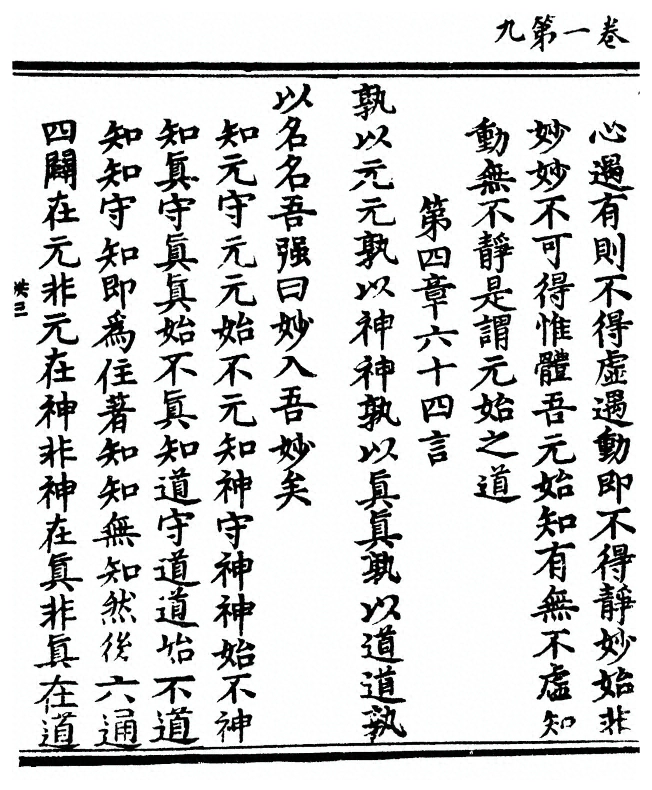 卷一第九
心遇有則不得虛遇動即不得靜妙始非
妙妙不可得惟體吾元始知有無不虛知
動無不靜是謂元始之道
第四章六十四言
孰以元元孰以神神孰以眞眞孰以道道孰
以名名吾强曰妙入吾妙矣
知元守元元始不元知神守神神始不神
知眞守眞眞始不眞知道守道道始不道
知知守知即爲住著知知無知然後六通
四闢在元非元在神非神在眞非眞在道